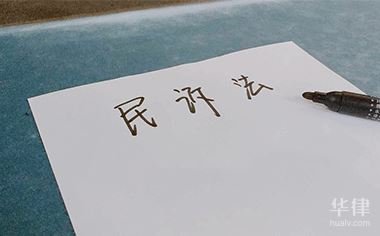 民诉法
华律
hualv.com